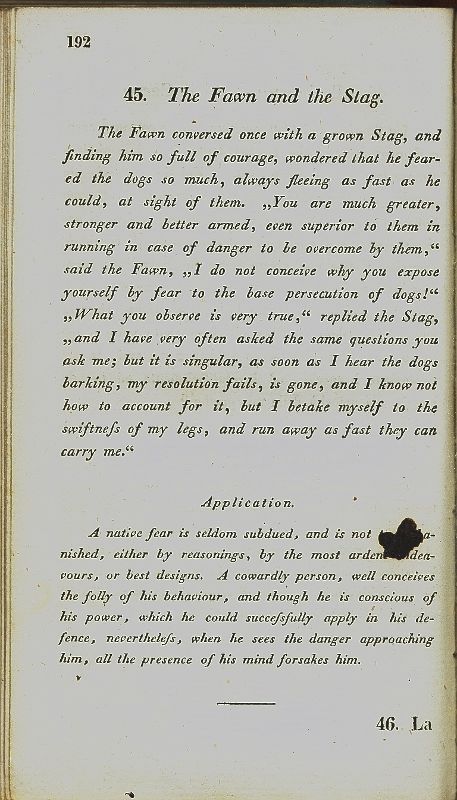 192
45. The Fawn and the Stag.
The Fawn conversed once with a grown Stag, and
finding him so full of courage, wondered that he fear-
ed the dogs so much, always fleeing as fast as he
could, at sight of them. „You are much greater,
stronger and better armed, even superior to them in
running in case of danger to be overcome by them,“
said the Fawn, „I do not conceive why you expose
yourself by fear to the base persecution of dogs!“
„What you observe is very true,“ replied the Stag,
„and I have very often asked the same questions you
ask me; but it is singular, as soon as I hear the dogs
barking, my resolution fails, is gone, and I know not
how to account for it, but I betake myself to the
swiftneſs of my legs, and run away as fast they can
carry me.“
Application.
A native fear is seldom subdued, and is not a-
nished, either by reasonings, by the most arden dea-
vours, or best designs. A cowardly person, well conceives
the folly of his behaviour, and though he is conscious of
his power, which he could succeſsfully apply in his de-
fence, nevertheleſs, when he sees the danger approaching
him, all the presence of his mind forsakes him.
46. La